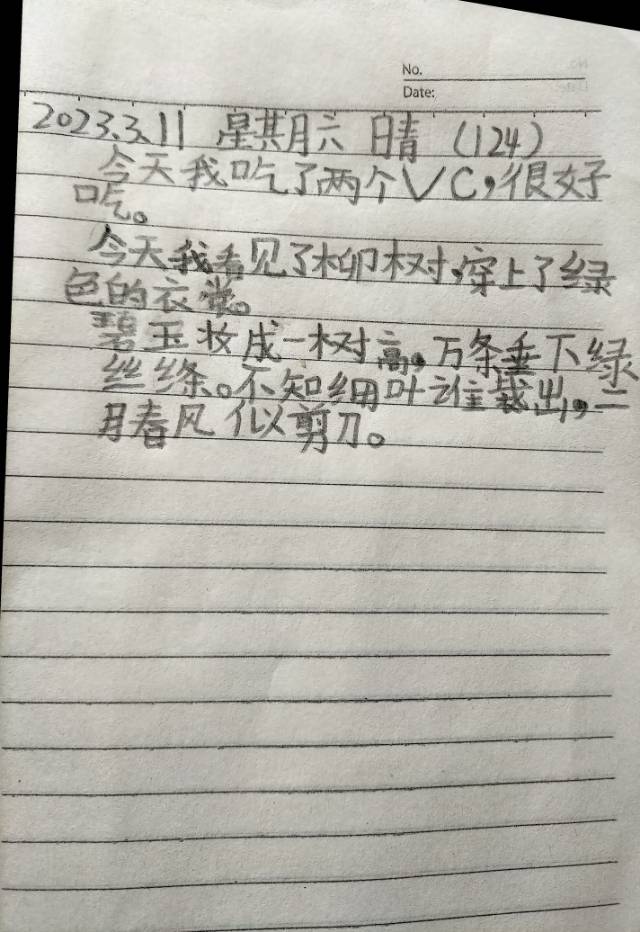 No.
Date:
2023.3.11 星期六 晴 (124)
今天我吃了两个VC,很好
吃。
今天我看见了柳树,穿上了绿
色的衣裳。
碧玉妆成一树高,万条垂下绿
丝绦。不知细叶谁裁出,二
月春风似剪刀。